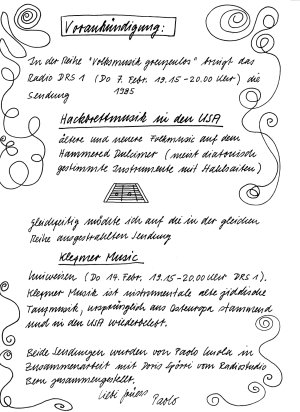 Vorankündigung:
In der Reihe "Volksmusik grenzenlos" bringt das
Radio DRS 1 (Do 7. Febr. 19.15-20.00 Uhr) die
Sendung 1985
Hackbrettmusik in den USA
ältere und neuere Folkmusic auf dem
Hammered Dulcimer (meist diatonisch
gestimmte Instrumente mit Stahlsaiten)
Gleichzeitig möchte ich auf die in der gleichen
Reihe ausgestrahlten Sendung
Klezmer Music
hinweisen (Do 14. Febr. 19.15-20.00 Uhr DRS 1).
Klezmer Music ist instrumentale alte jiddische
Tanzmusik, ursprünglich aus Osteuropa stammend
und in den USA wiederbelebt.
Beide Sendungen wurden von Paolo Imola in
Zusammenarbeit mit Doris vom Radiostudio
Bern zusammengestellt.
Paolo